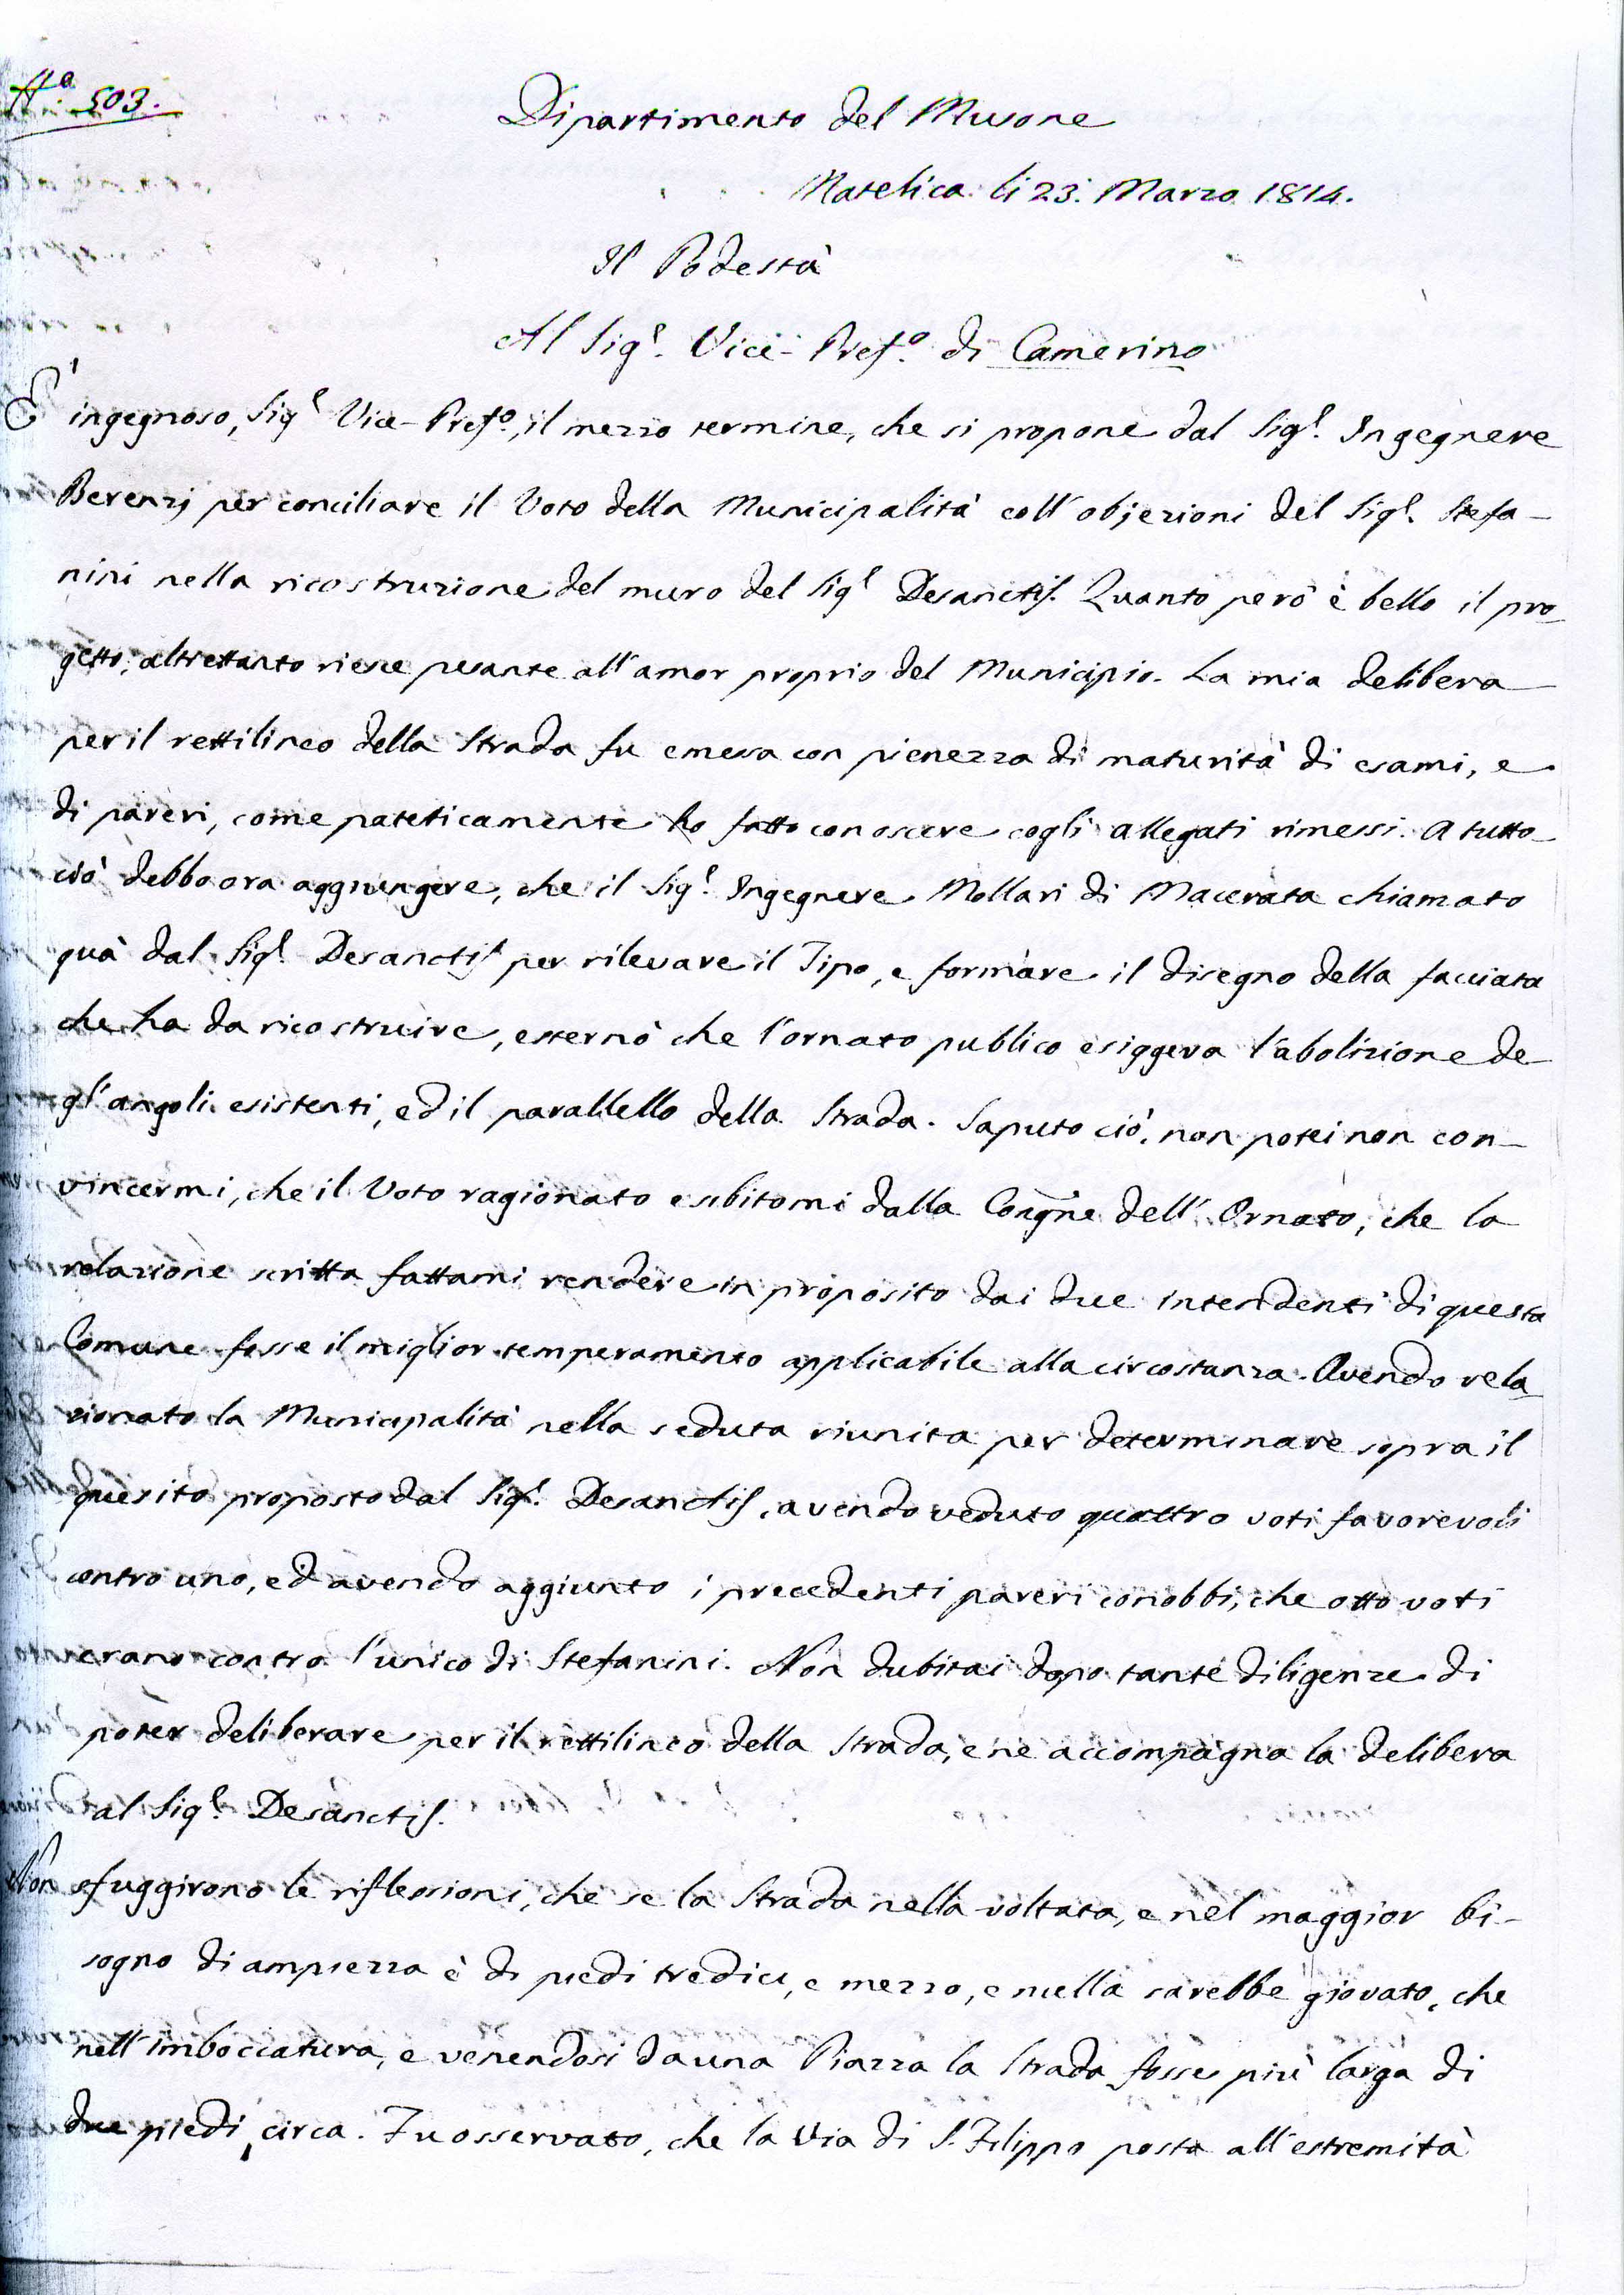 N.º 503.
Dipartimento del Musone
Matelica li 23. Marzo 1814.
Il Podestà
Al Sigr. Vice-Prefo. di Camerino
È ingegnoso, Sigr Vice-Prefo., il mezzo termine, che si propone dal Sigr. Ingegnere
Berenzj per conciliare il Voto della Municipalità coll'objezioni del Sigr. Stefa-
nini nella ricostruzione del muro del Sigr Desanctis. Quanto però è bello il pro-
getto, altrettanto riesce pesante all'amor proprio del Municipio. La mia delibera
per il rettilineo della Strada fu emessa con pienezza di maturità di esami, e
di pareri, come pateticamente ho fatto conoscere cogli allegati rimessi. A tutto
ciò debbo ora aggiungere, che il Sigr. Ingegnere Mollari di Macerata chiamato
quà dal Sigr. Desanctis per rilevare il Tipo, e formare il disegno della facciata
che ha da ricostruire, esternò che l'ornato publico esiggeva l'abolizione de
gl'angoli esistenti, ed il parallello della Strada. Saputo ciò, non potei non con-
vincermi, che il Voto ragionato esibitomi dalla Congne dell'Ornato, che la
relazione scritta fattami rendere in proposito dai due intendenti di questa
Comune fosse il miglior temperamento applicabile alla circostanza. Avendo rela
zionato la Municipalità nella seduta riunita per determinare sopra il
quesito proposto dal Sigr. Desanctis, avendo veduto quattro voti favorevoli
contro uno, ed avendo aggiunto i precedenti pareri conobbi, che otto voti
erano contro l'unico di Stefanini. Non dubitai dopo tante diligenze di
poter deliberare per il rettilineo della Strada, e ne accompagna la delibera
al Sigr. Desanctis.
Non sfuggirono le riflessioni, che se la Strada nella voltata, e nel maggior bi-
sogno di ampiezza è di piedi tredici, e mezzo, e nulla sarebbe giovato, che
nell'imboccatura, e venendosi da una Piazza la Strada fosse più larga di
due piedi circa. Fu osservato, che la Via di S. Filippo posta all'estremità